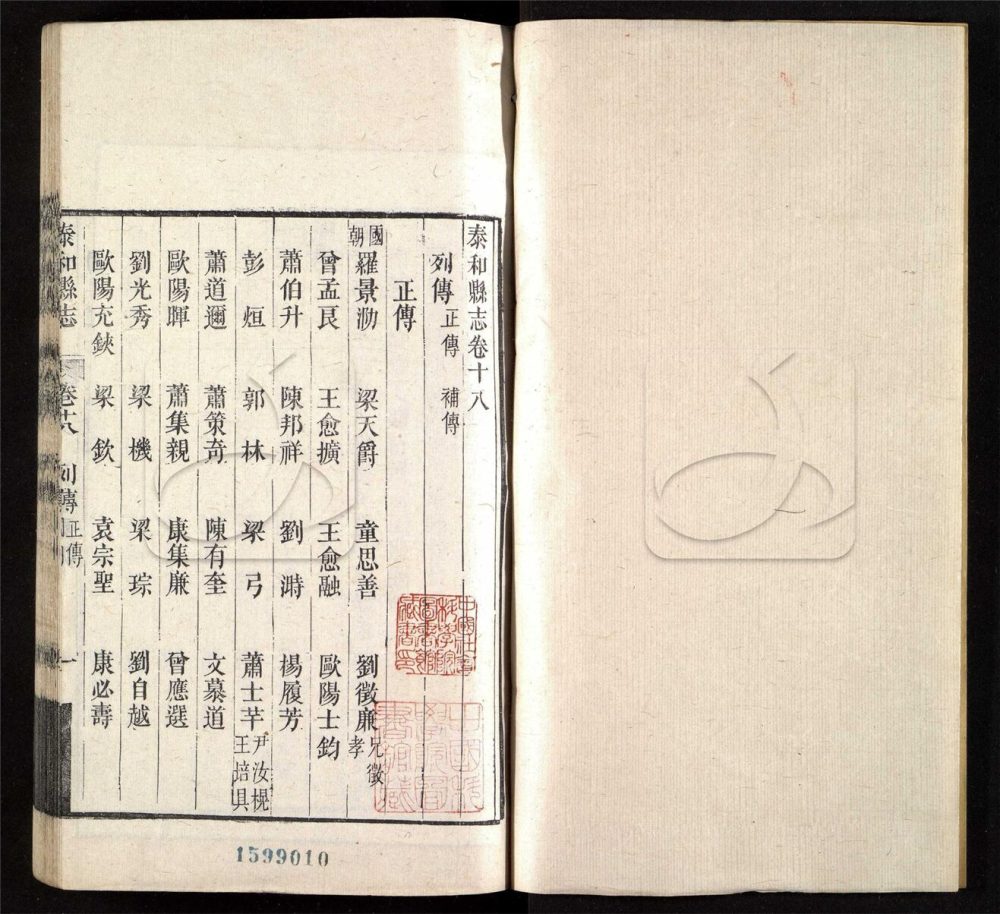 泰和縣志卷十八
列傳 正傳 補傳
正傳
國朝 羅景泐 梁天爵 童思善 劉徵廉 兄徵孝
曾孟艮 王愈擴 王愈融 歐陽士鈞
蕭伯升 陳邦祥 劉溡 楊履芳
彭烜 郭林 梁弓 蕭士芊 尹汝棿 王培具
蕭道邇 蕭策奇 陳有奎 文慕道
歐陽暉 蕭集親 康集廉 曾應選
劉光秀 梁機 梁琮 劉自越
歐陽充鋏 梁欽 袁宗聖 康必壽
泰和縣志 卷十八 列傳 正傳 一
1599010